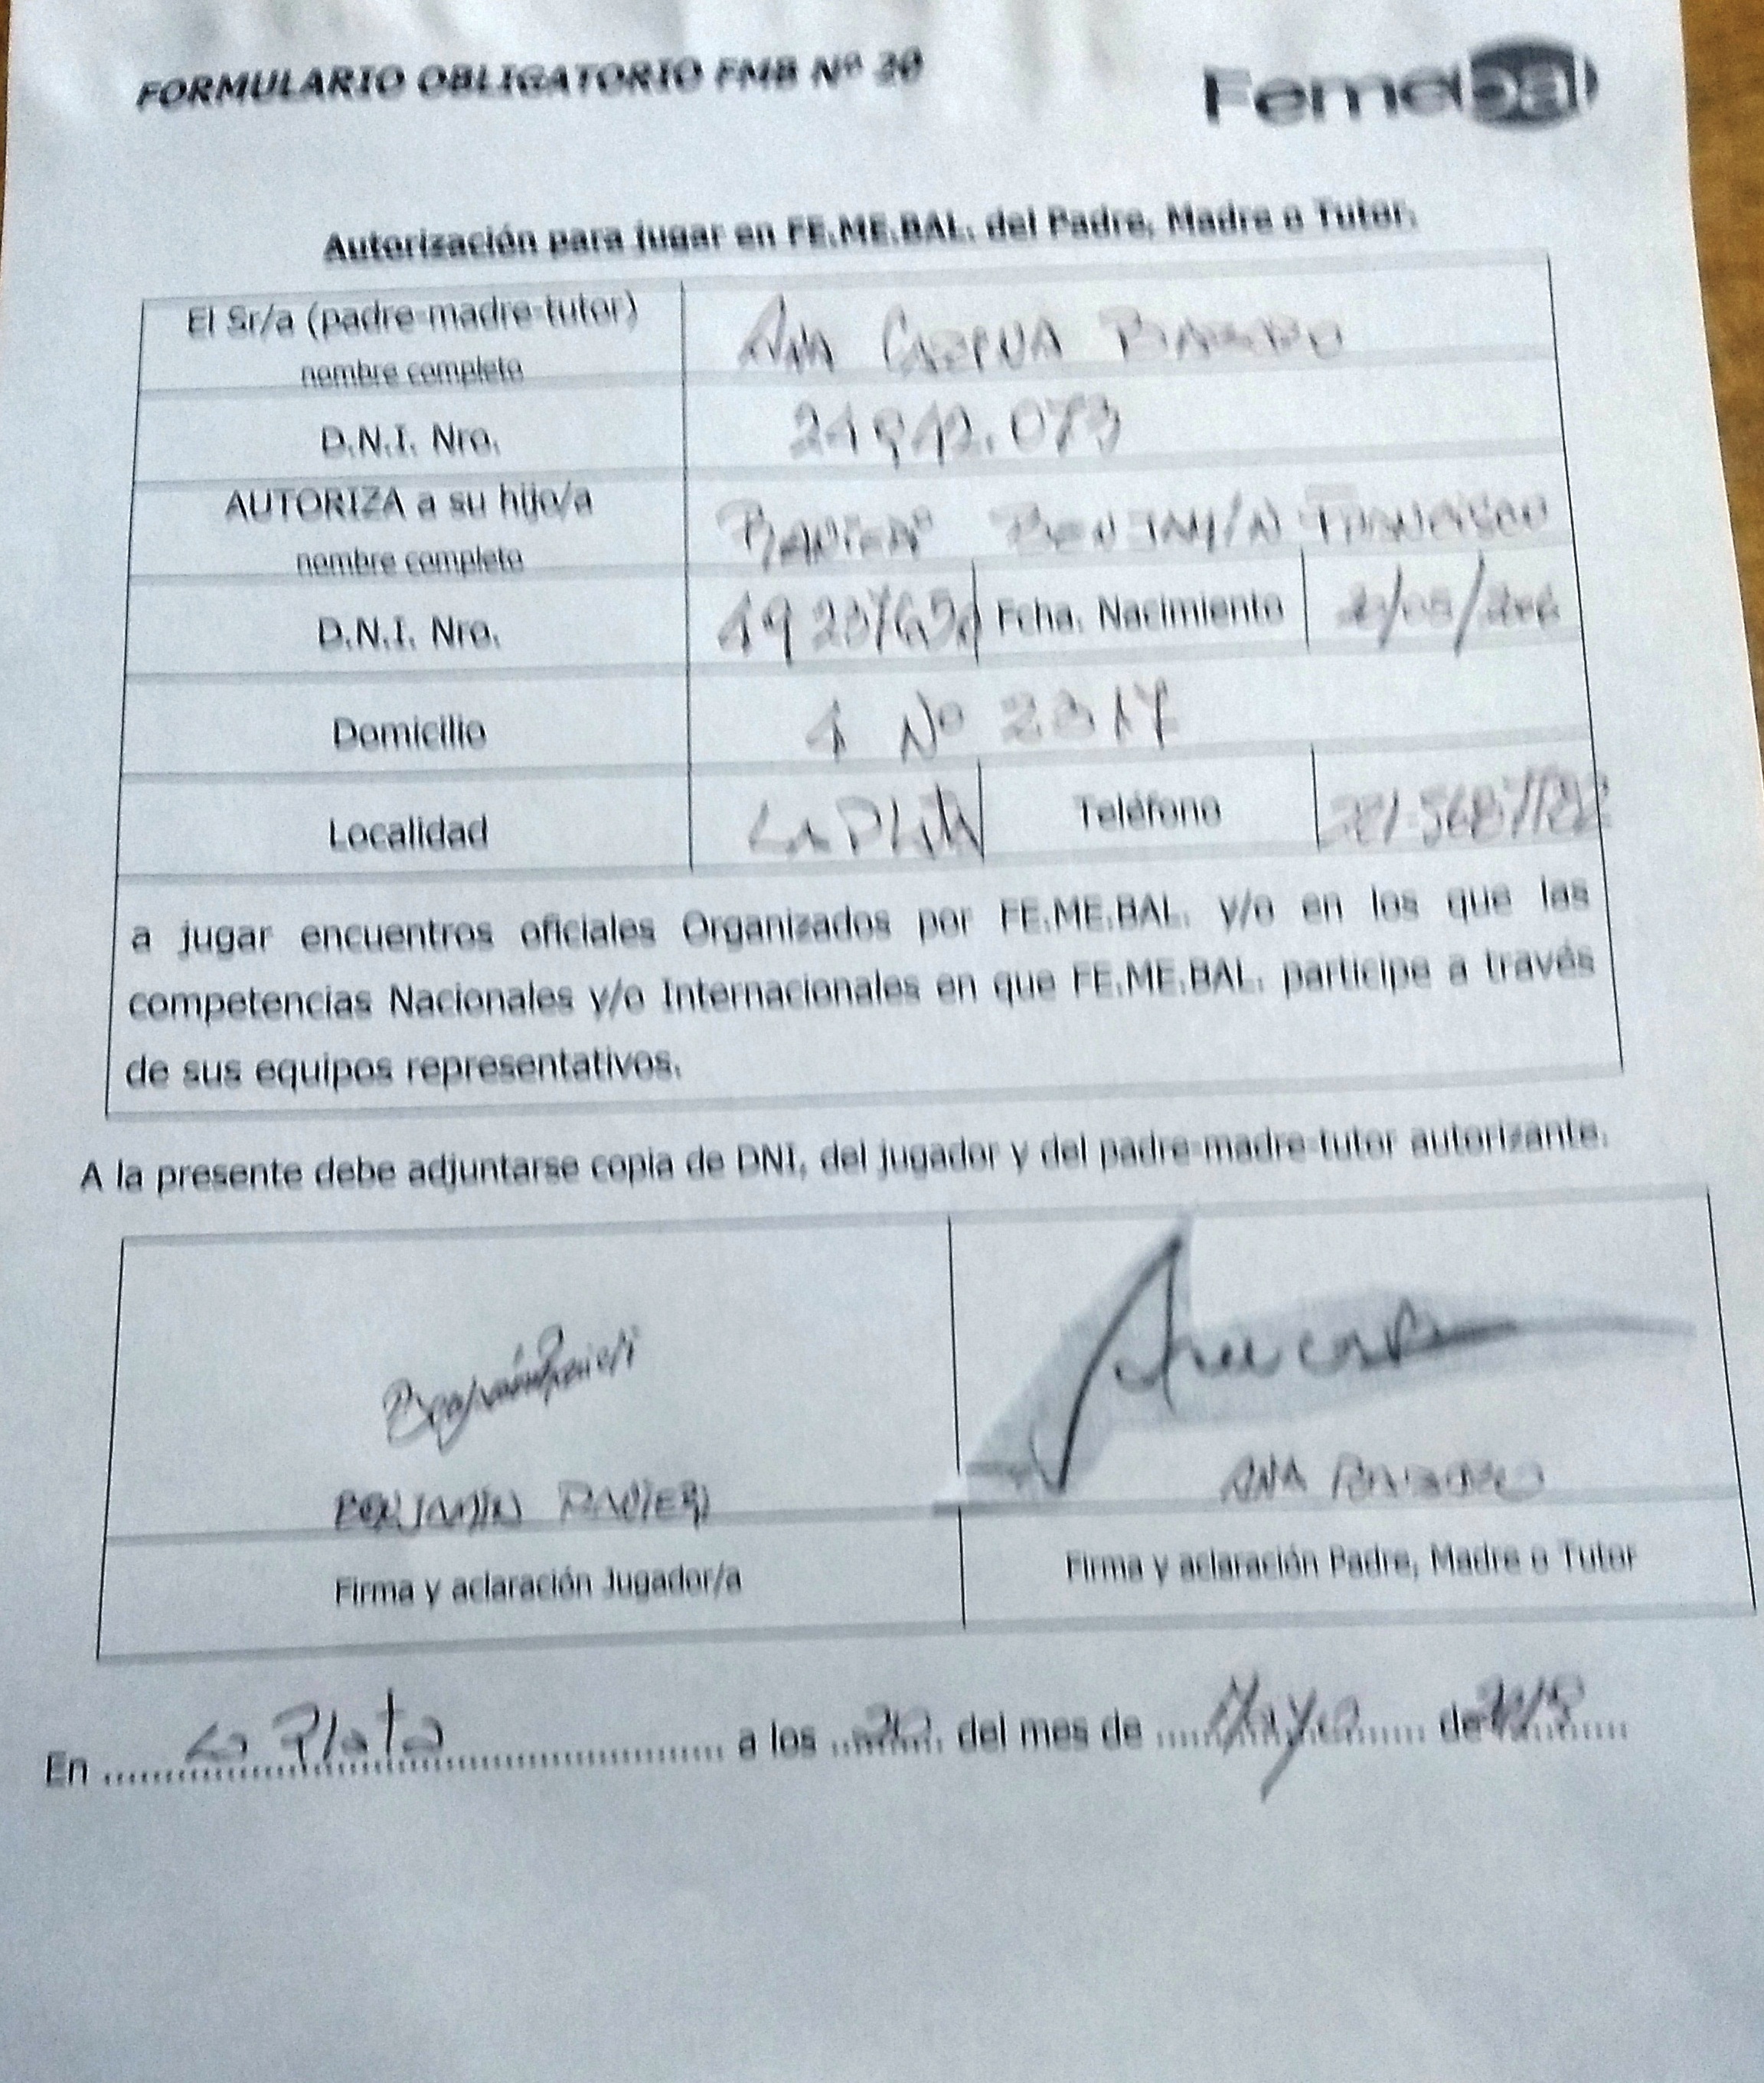 FORMULARIO OBLIGATORIO FMB Nº 20
Femebal
Autorización para jugar en FE.ME.BAL. del Padre, Madre o Tutor.
El Sr/a (padre-madre-tutor)
nombre completo
Ana
D.N.I. Nro.
AUTORIZA a su hijo/a
nombre completo
Benjamín Francisco
D.N.I. Nro.
Fcha. Nacimiento
Domicilio
1 Nº 2317
Localidad
La Plata
Teléfono
a jugar encuentros oficiales Organizados por FE.ME.BAL. y/o en los que las
competencias Nacionales y/o Internacionales en que FE.ME.BAL. participe a través
de sus equipos representativos.
A la presente debe adjuntarse copia de DNI, del jugador y del padre-madre-tutor autorizante.
BENJAMÍN
ANA
Firma y aclaración Jugador/a
Firma y aclaración Padre, Madre o Tutor
En La Plata a los 20 del mes de Mayo de